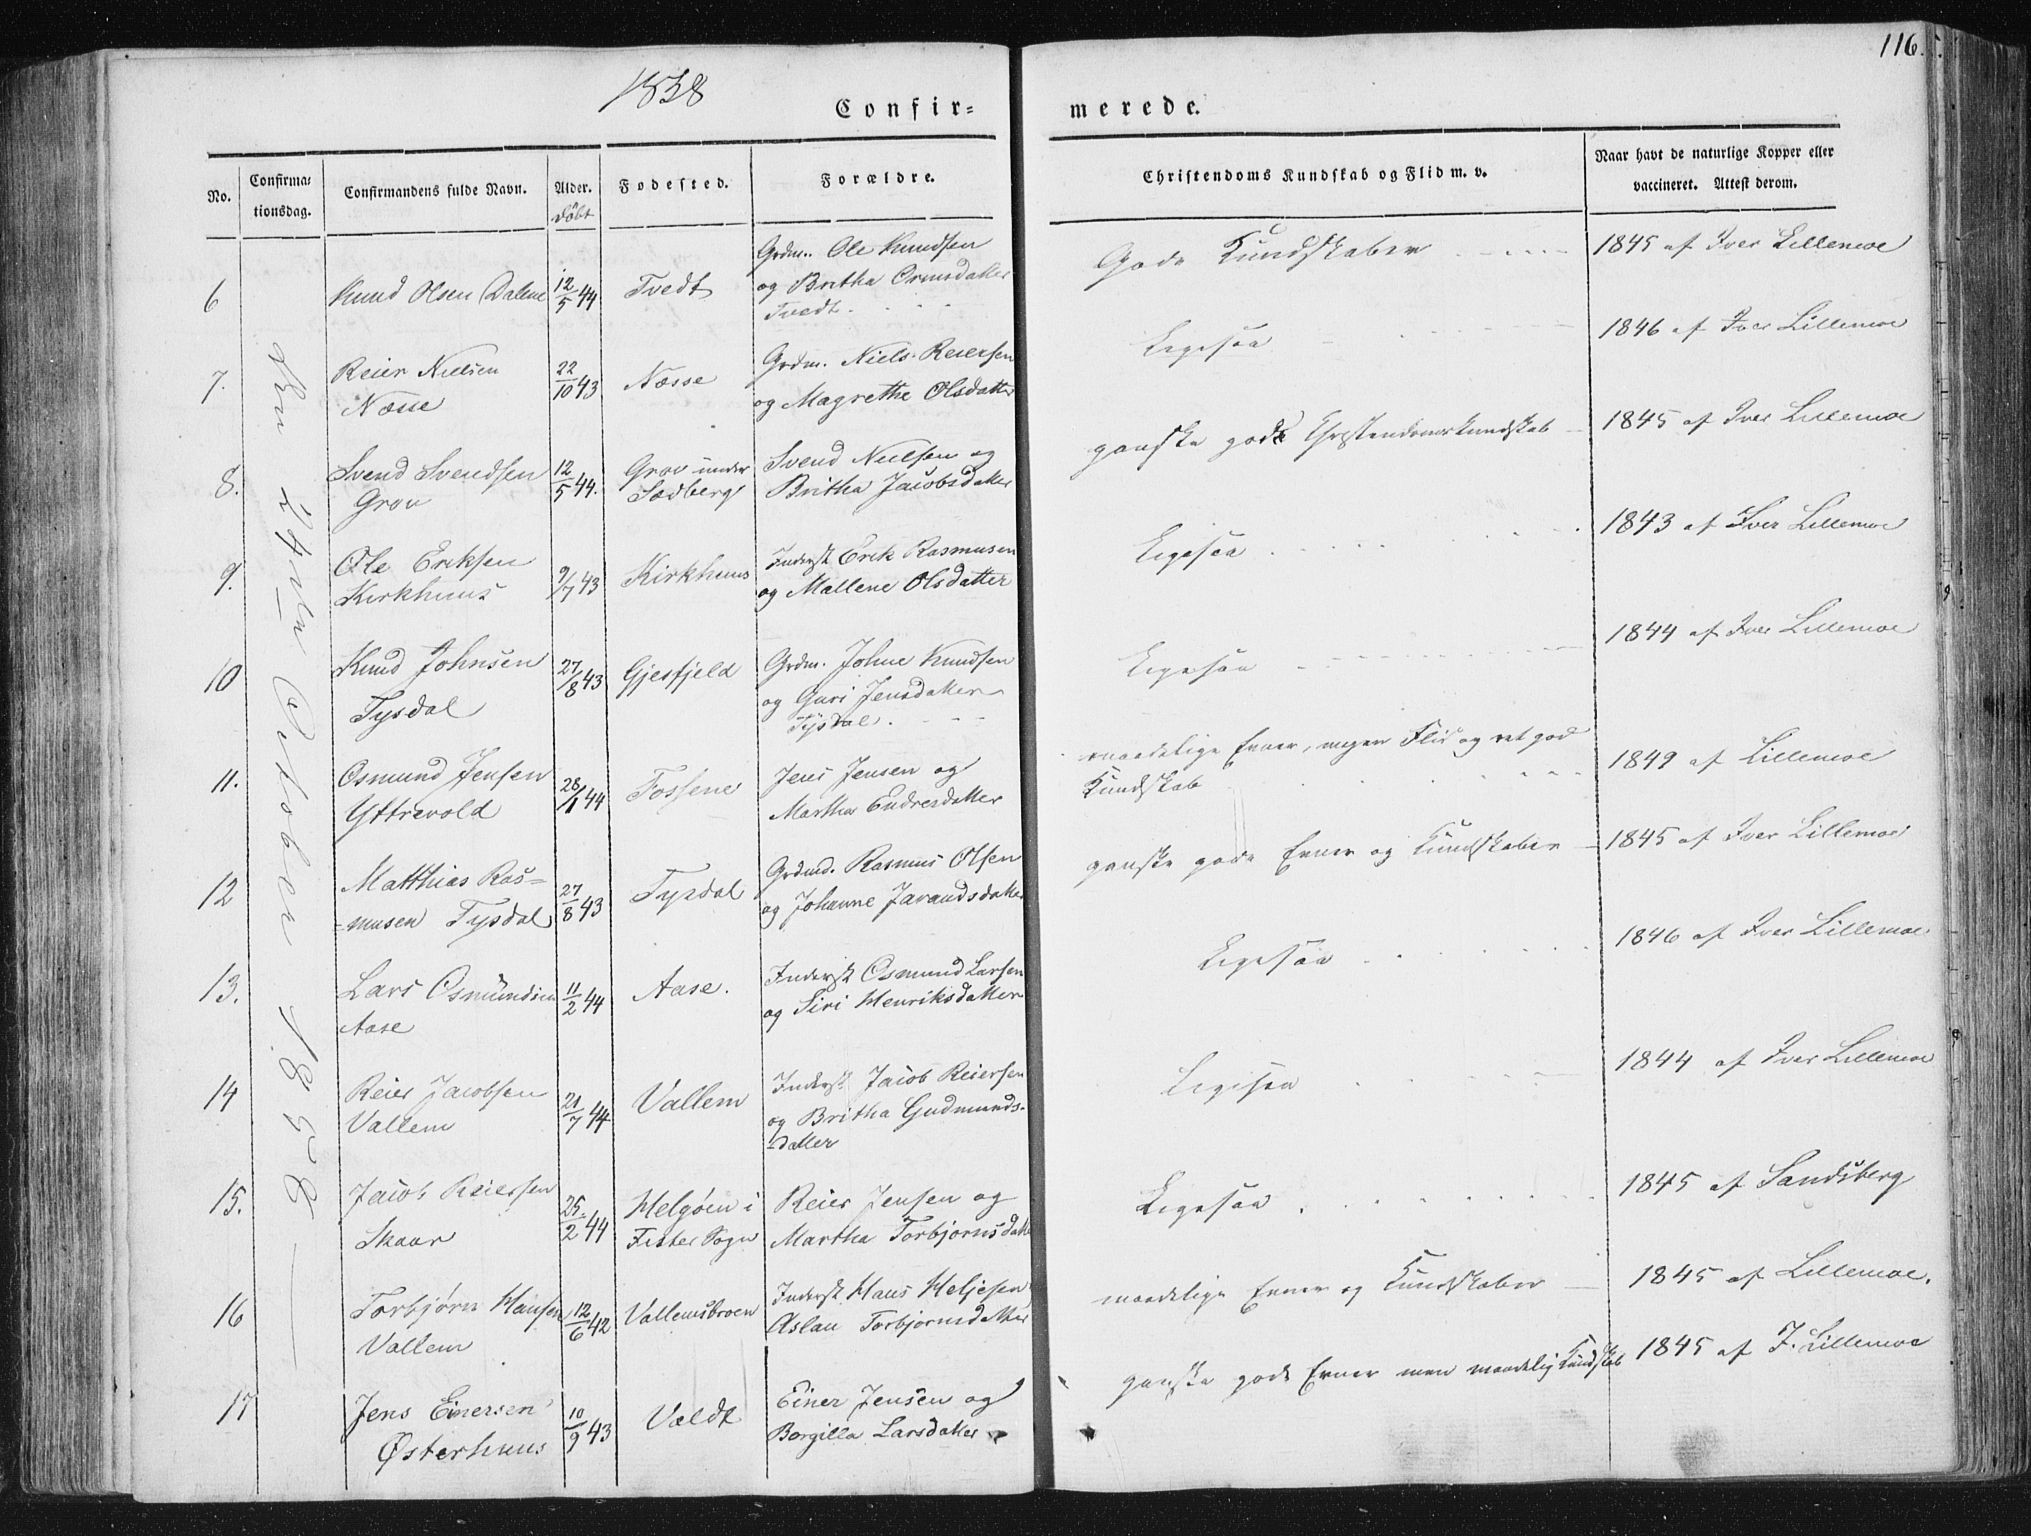 1858
116.
Confir=
merede.
No.
Confirma=
tionsdag.
Confirmandens fulde Navn.
Alder.
döbt
Fodested.
Forældre.
Christendoms Kundskab og Flid m. v.
Naar havt de naturlige Kopper eller
vaccineret. Attest derom.
Den 24de October 1858
6
Knud Olsen Dalene
12/5 44
Tvedt
Grdm. Ole Knudsen
og Britha Ormsdatter
Tvedt.
Gode Kundskaber
1845 af Iver Lillemoe
7.
Reier Nielsen
Næsse
22/10 43
Næsse
Grdm. Niels Reiersen
og Magrethe Olsdatter
Ligesaa
1846 af Iver Lillemoe
8.
Svend Svendsen
Grov
12/5 44.
Grov under
Sædberg
Svend Nielsen og
Britha Jacobsdatter
ganske gode Christendomskundskab
1845 af Iver Lillemoe
9.
Ole Eriksen
Kirkhuus
9/7 43
Kirkhuus
Inderst Erik Rasmusen
og Mallene Olsdatter
Ligesaa
1843 af Iver Lillemoe
10
Knud Johnsen
Tysdal
27/8 43
Gjesfjeld
Grdm. Johne Knudsen
og Guri Jensdatter
Tysdal.
Ligesaa
1844 af Iver Lillemoe
11.
Osmund Jensen
Yttrevold
28/1 44
Fossene
Jens Jensen og
Martha Endresdatter
maadelige Evner, megen Flid og ret god
Kundskab
1849 af Lillemoe
12
Matthias Ras=
=musen Tysdal
27/8 43
Tysdal
Grdmd. Rasmus Olsen
og Johanne Jarandsdatter
ganske gode Evner og Kundskaber
1845 af Iver Lillemoe
13.
Lars Osmundsen
Aase
11/2 44
Aase.
Inderst Osmund Larsen
og Siri Henriksdatter
Ligesaa
1846 af Iver Lillemoe
14
Reier Jacobsen
Vallem
21/7 44
Vallem
Inderst Jacob Reiersen
og Britha Gudmunds-
=datter
Ligesaa
1844 af Iver Lillemoe
15.
Jacob Reiersen
Skaar
25/2 44
Helgöen i
Fister Sogn
Reier Jensen og
Martha Torbjørnsdatter
Ligesaa
1845 af Sandsberg
16
Torbjørn Hansen
Vallem
12/6 42
Vallemsbroen
Inderst Hans Heljesen
Aslau Torbjørnsdatter
maadelige Evner og Kundskaber
1845 af Lillemoe.
17
Jens Einersen
Østerhuus
10/9 43
Valdt
Einer Jensen og
Borgilla Larsdatter
ganske gode Evner men maadelig Kundskab
1845 af I. Lillemoe